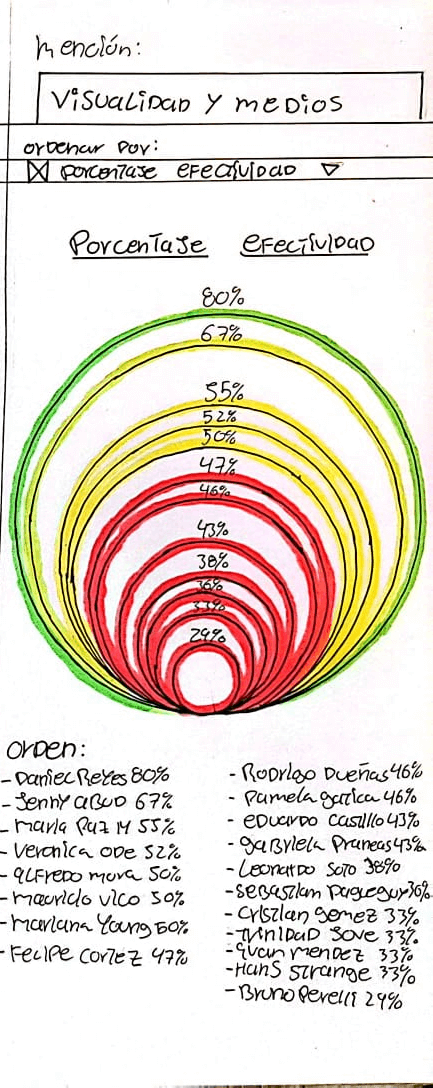 Mención:
Visualidad y medios
ordenar por:
porcentaje efectividad
Porcentaje efectividad
80%
67%
55%
52%
50%
47%
46%
43%
38%
36%
33%
29%
Orden:
- Daniel Reyes 80%
- Jenny Abud 67%
- María Paz M 55%
- Veronica Ode 52%
- Alfredo Mora 50%
- Mauricio Vico 50%
- Mariana Young 50%
- Felipe Cortez 47%
- Rodrigo Dueñas 46%
- Pamela Gatica 46%
- Eduardo Castillo 43%
- Gabriela Praneas 43%
- Leonardo Soto 38%
- Sebastian 36%
- Cristian Gomez 33%
- Trinidad Jove 33%
- Ivan Mendez 33%
- Hans Strange 33%
- Bruno Perelli 29%